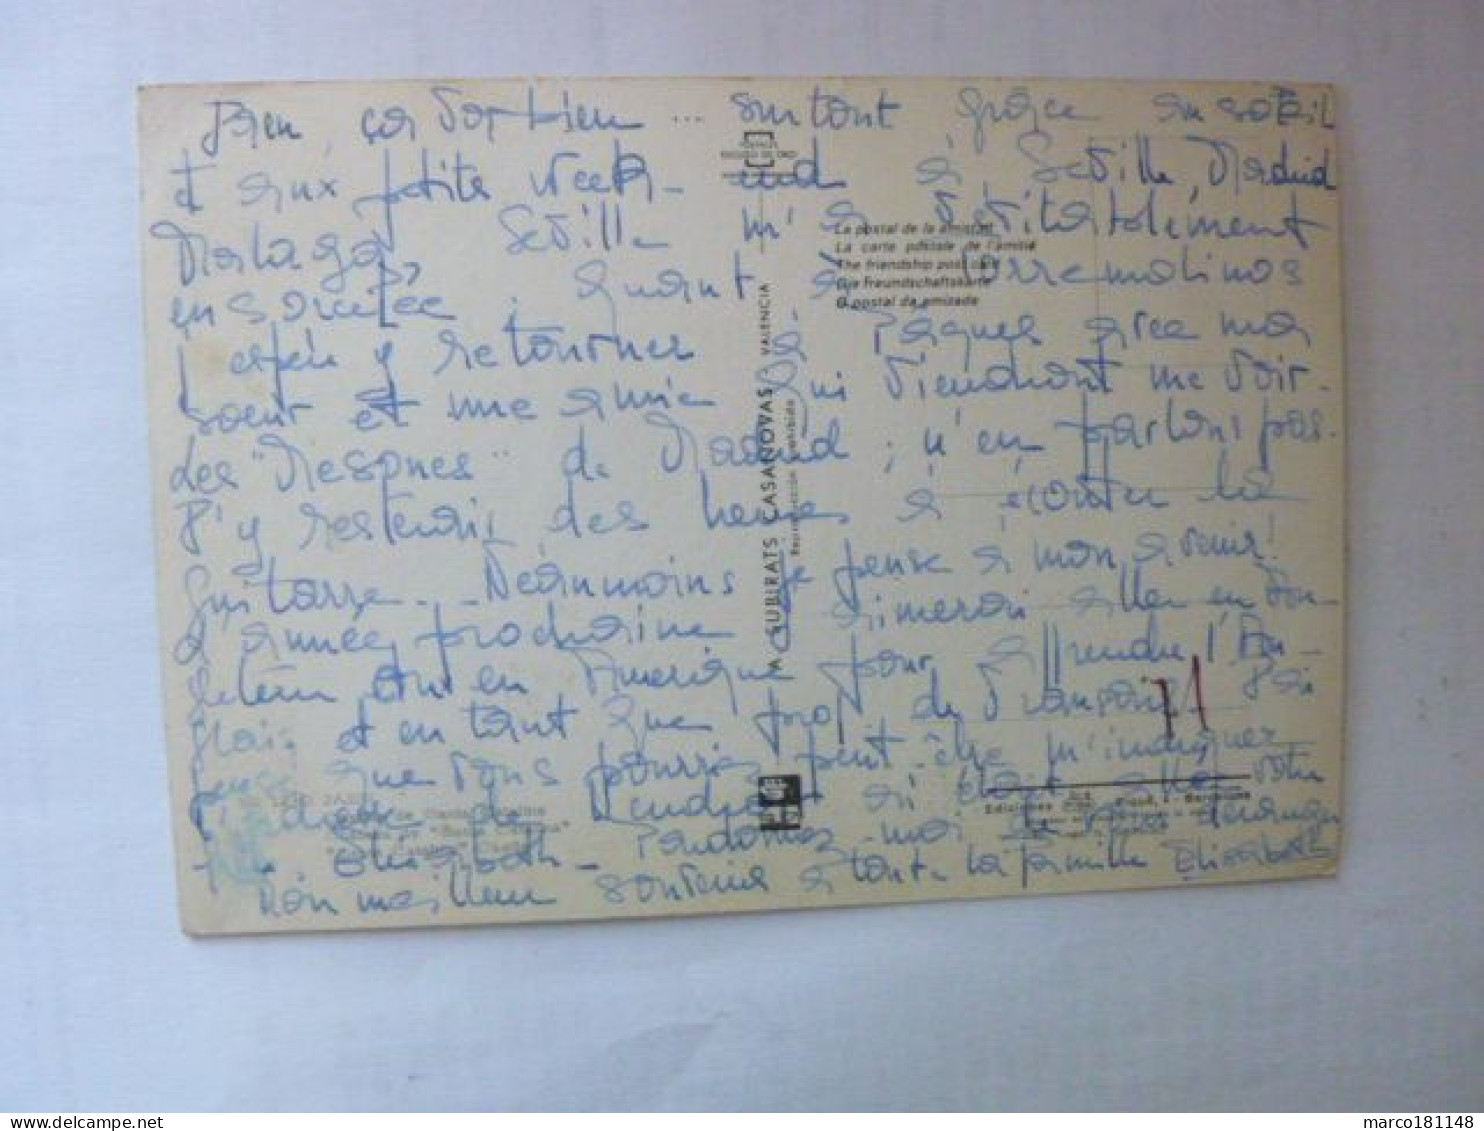 Bien, ça va bien ... surtout grâce au soleil
et aux petits week-end à Séville, Madrid
Malaga, Séville m'a véritablement
ensorcelée. Quant à Torremolinos
j'espère y retourner à Pâques avec ma
soeur et une amie qui viendront me voir.
Les "Mesones" de Madrid ; n'en parlons pas.
J'y resterais des heures à écouter la
guitarre... Néanmoins je pense à mon avenir!
L'année prochaine j'aimerai aller en
en Amérique pour apprendre l'An-
glais et en tant que prof de Français. J'ai
pensé que vous pourriez peut-être m'indiquer
l'adresse de si était votre
Elisabeth - Pardonnez-moi de vous déranger
Mon meilleur souvenir à toute la famille Elisabeth
POSTALES
ESCUDO DE ORO
La postal de la amistad
La carte postale de l'amitié
The friendship post card
Die Freundschaftskarte
O postal da amizade
A. SUBIRATS CASANOVAS / VALENCIA
Reproducción prohibida
71
Ediciones
marco181148